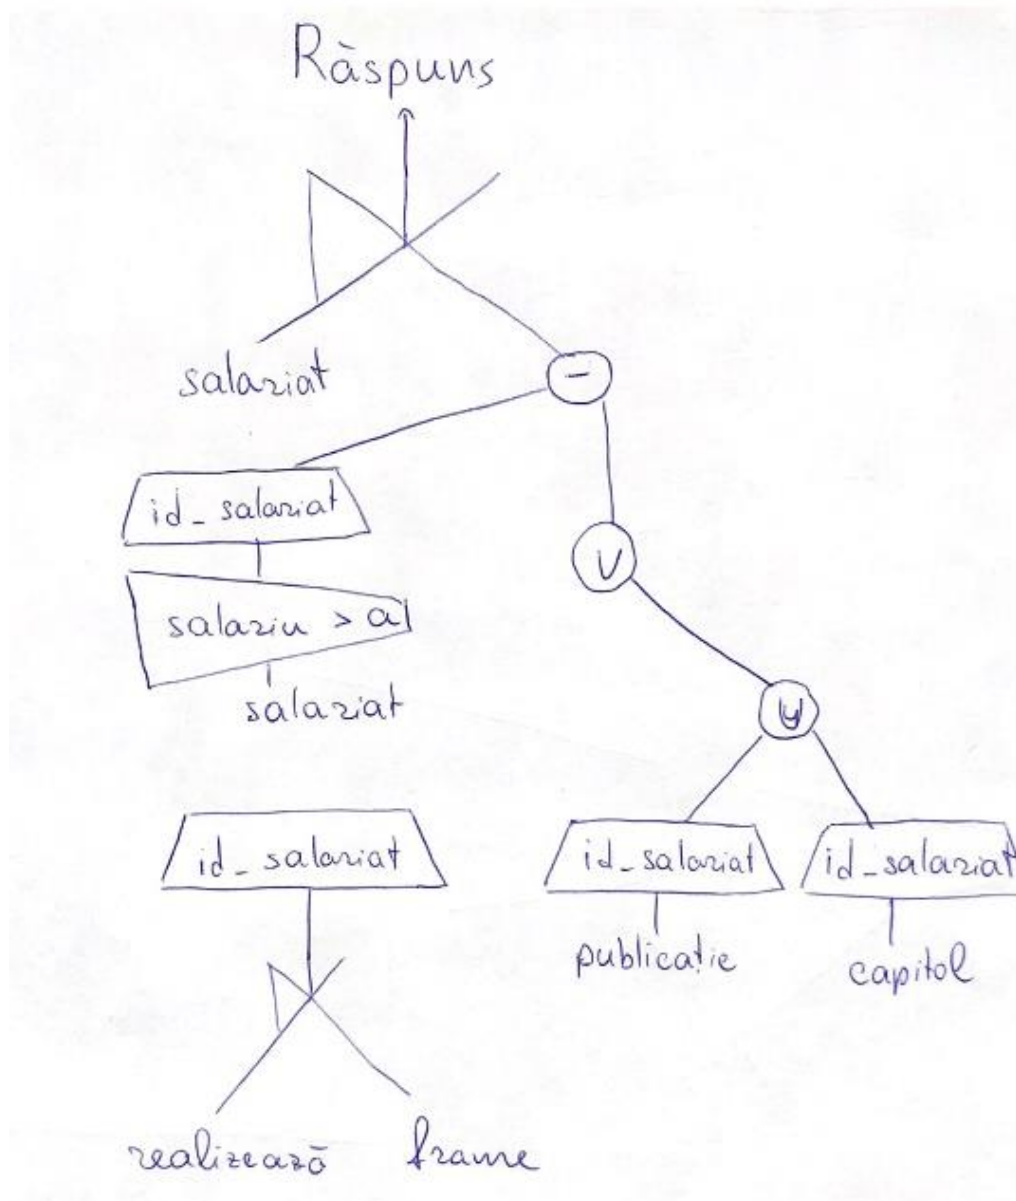 Răspuns
salariat
−
id_salariat
salariu > a
salariat
∪
∪
id_salariat
id_salariat
id_salariat
publicație
capitol
realizează
frame